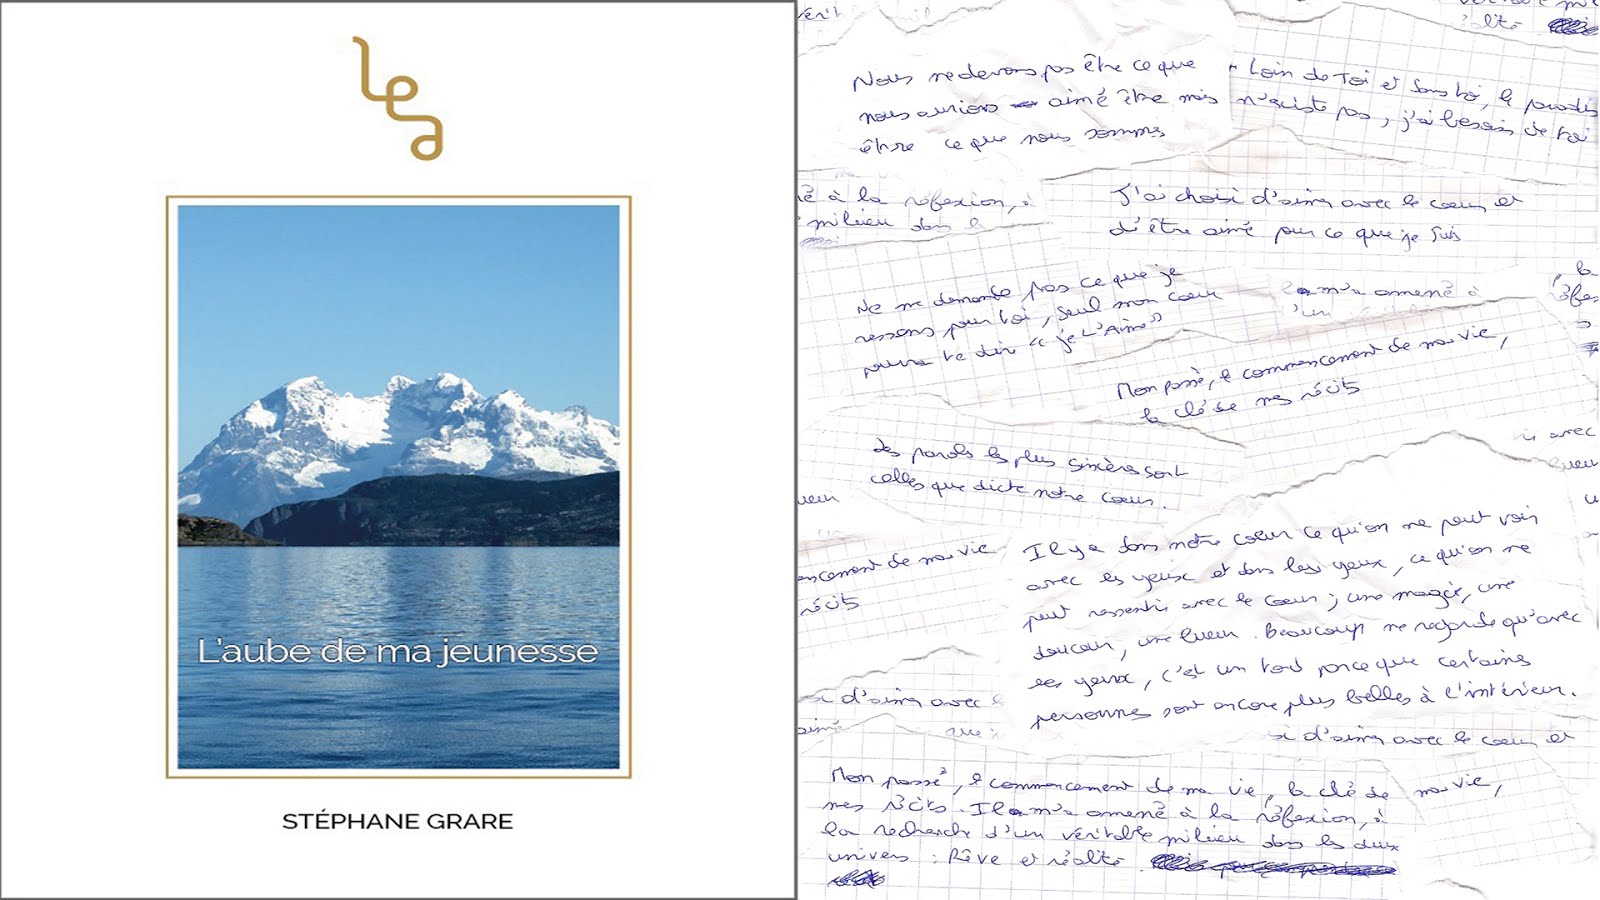 lea
L'aube de ma jeunesse
STÉPHANE GRARE
Nous ne devons pas être ce que
nous aurions aimé être mais
être ce que nous sommes
Loin de Toi et Sans toi, le paradis
n'existe pas, j'ai besoin de toi
é à la réflexion, à
milieu dans le
J'ai choisi d'aimer avec le coeur et
d'être aimé pour ce que je suis
Ne me demande pas ce que je
ressens pour toi, seul mon coeur
pourra te dire "je t'Aime"
m'a amené à
Mon passé, le commencement de ma vie,
la clé de mes récits
Les paroles les plus sincères sont
celles que dicte notre coeur.
avec
lueur
ncement de ma vie
récits
Il y a dans notre coeur ce qu'on ne peut voir
avec les yeux et dans les yeux, ce qu'on ne
peut ressentir avec le coeur ; une magie, une
douceur, une lueur. Beaucoup ne regarde qu'avec
ses yeux, c'est un tort parce que certaines
personnes sont encore plus belles à l'intérieur.
d'aimer avec le
aimé
que
d'aimer avec le coeur et
Mon passé, le commencement de ma vie, la clé de
mes récits. Il m'a amené à la réflexion, à
la recherche d'un véritable milieu dans les deux
univers : Rêve et réalité.
ma vie,